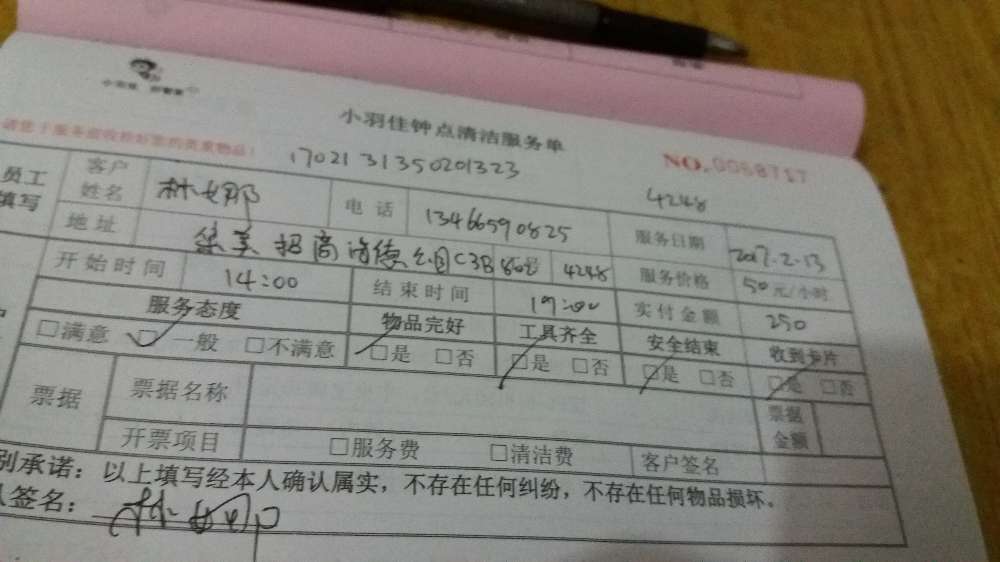 小羽佳钟点清洁服务单
NO.0068717
请您于服务前收拾好您的贵重物品！
1702131350201323
4248
员工填写
客户姓名 林女那 电话 13466590825 服务日期 2017.2.13
地址 集美招商海德公园C3B 4248 服务价格 50元/小时
开始时间 14:00 结束时间 19:00 实付金额 250
服务态度 物品完好 工具齐全 安全结束 收到卡片
□满意 □一般 □不满意 □是 □否 □是 □否 □是 □否 □是 □否
票据 票据名称 票据金额
开票项目 □服务费 □清洁费 客户签名
别承诺：以上填写经本人确认属实，不存在任何纠纷，不存在任何物品损坏。
人签名：